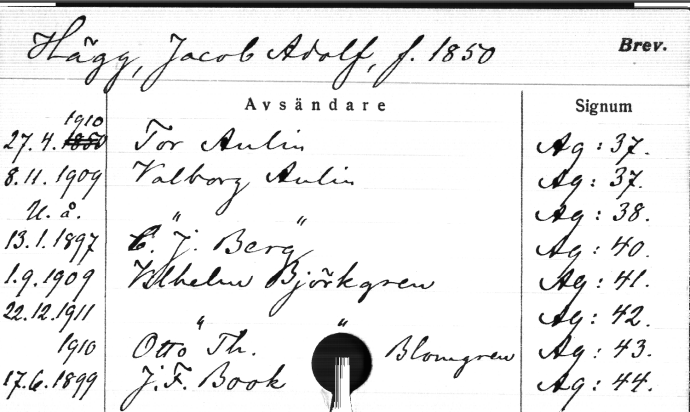 Hägg, Jacob Adolf, f. 1850 Brev.
Avsändare Signum
1910
27.4. 1850 Tor Aulin Ag: 37.
8.11. 1909 Valborg Aulin Ag: 37.
U. å. " " Ag: 38.
13.1.1897 C. J. Berg Ag: 40.
1.9.1909 Vilhelm Björkgren Ag: 41.
22.12.1911 " " Ag: 42.
1910 Otto Th. Blomgren Ag: 43.
17.6.1899 J.F. Book Ag: 44.